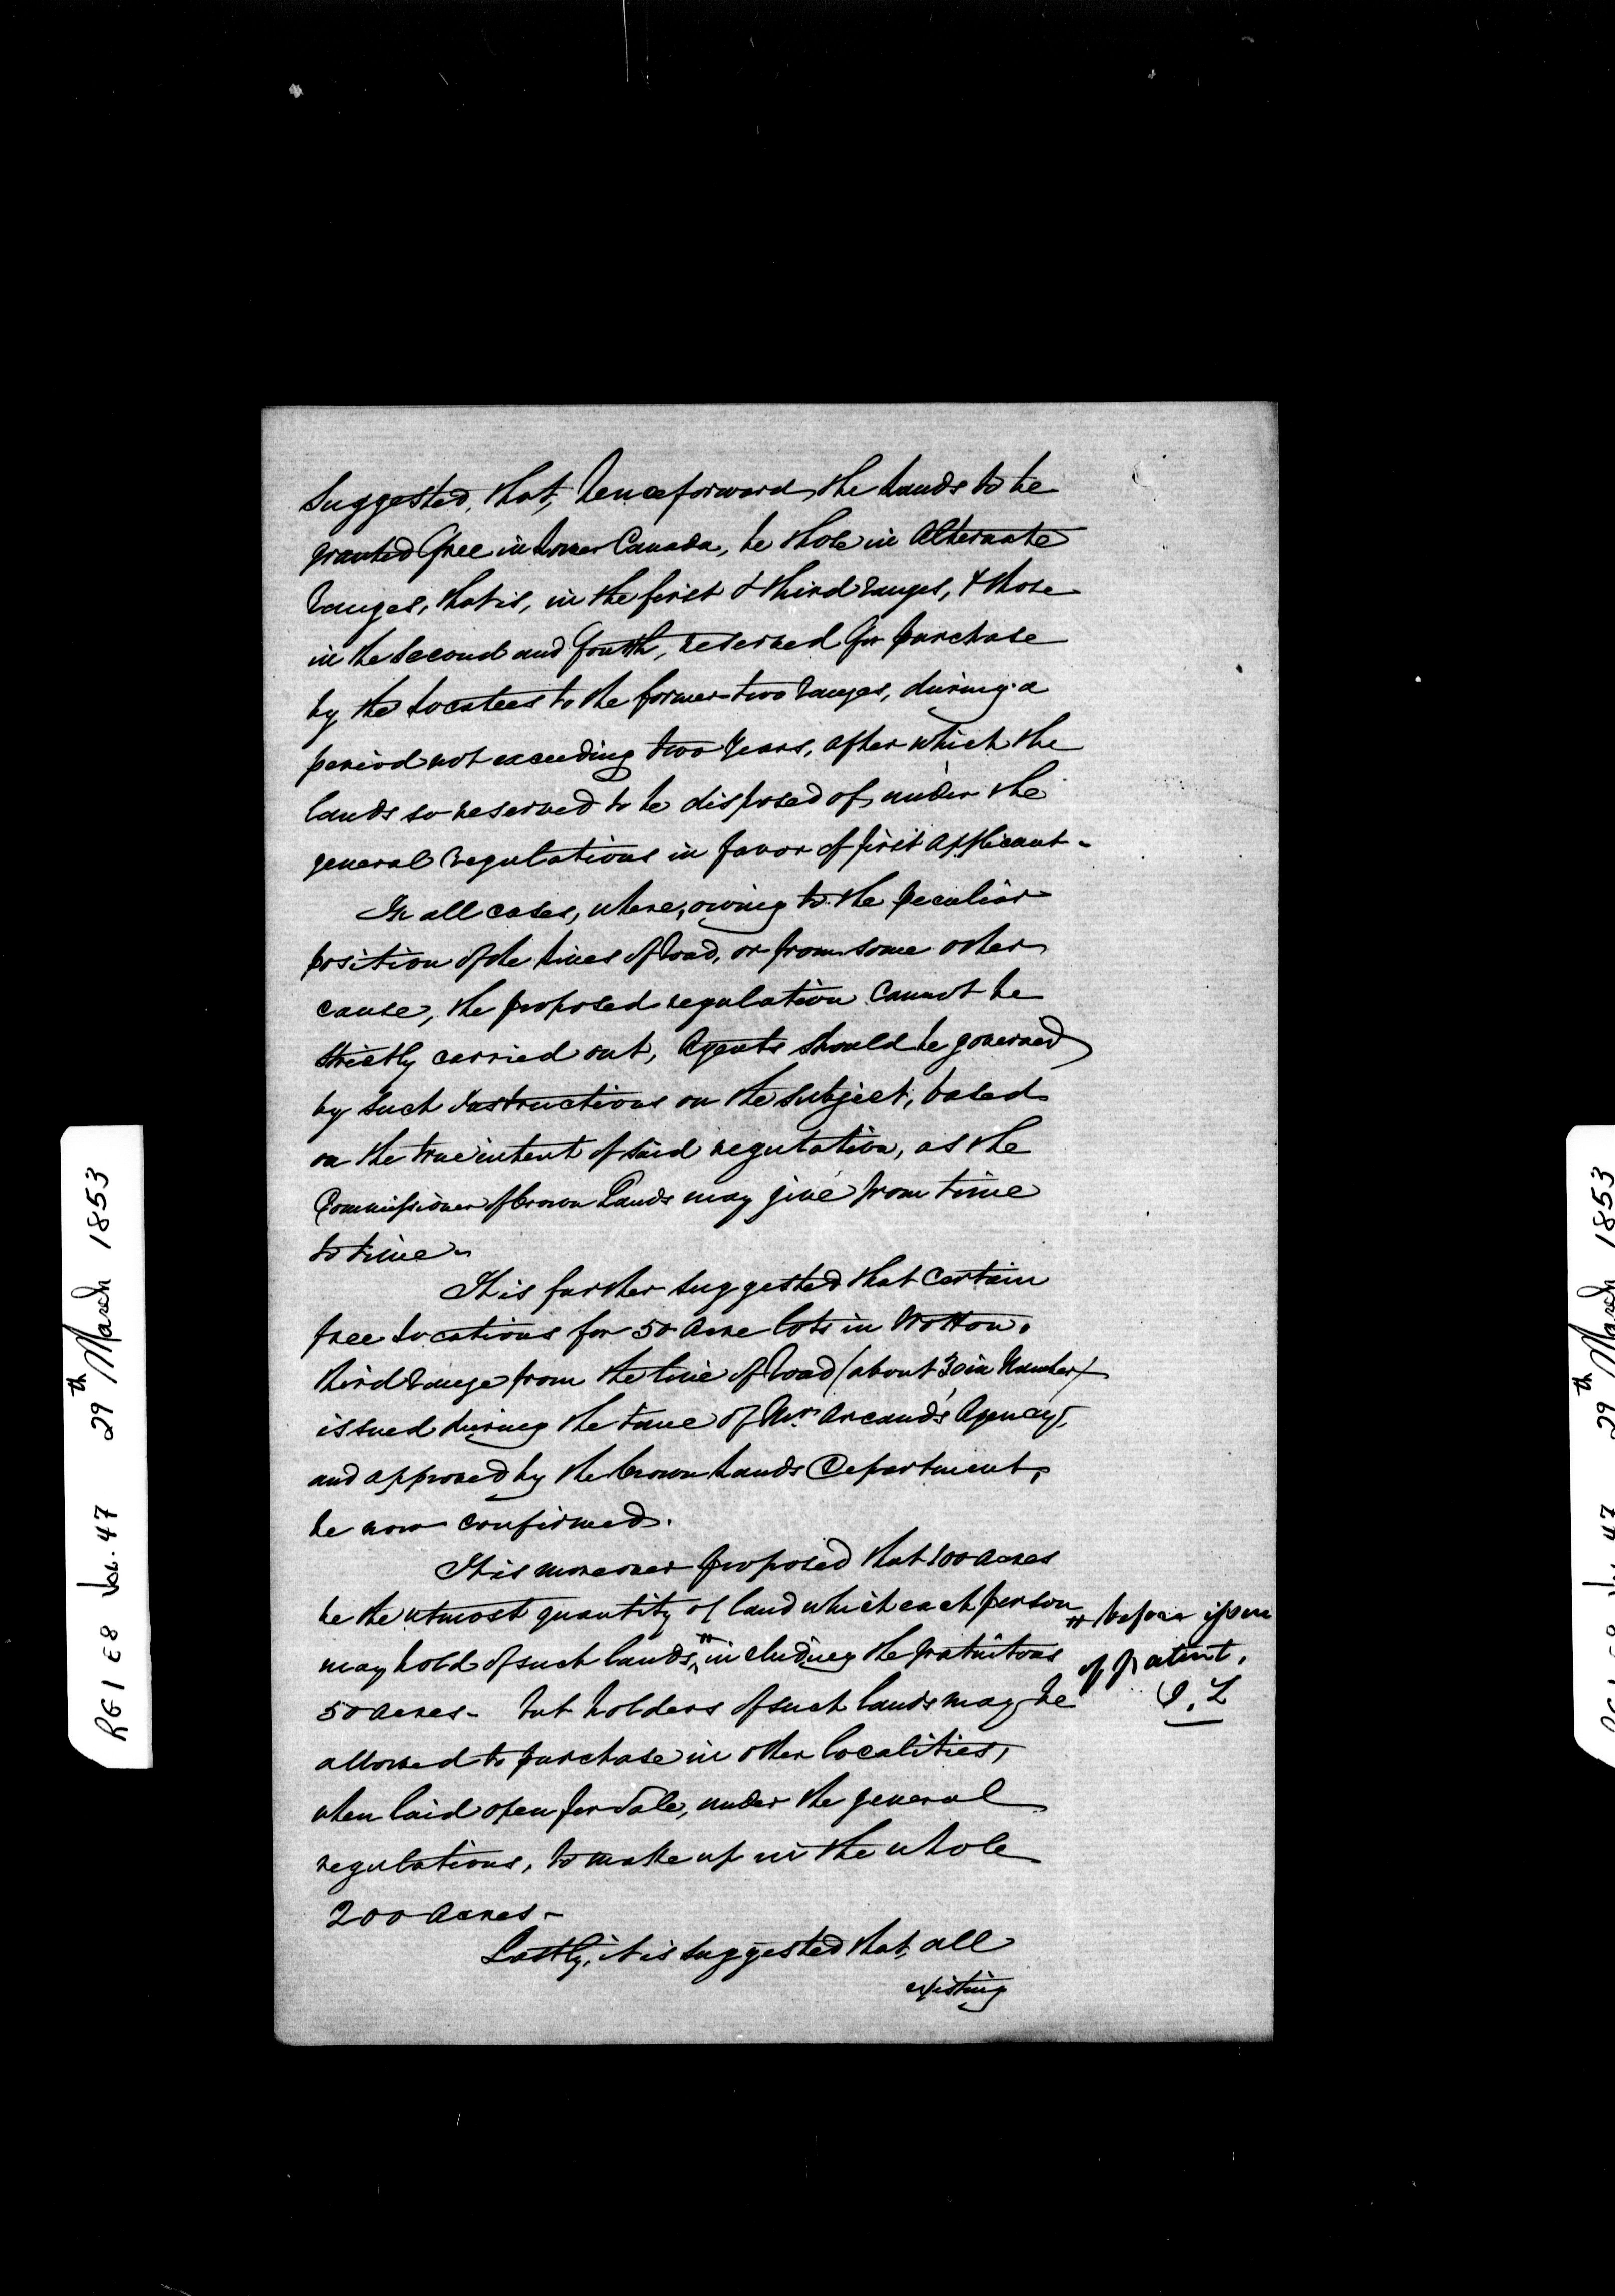 Suggested, that, henceforward, the Lands to be
granted free in Lower Canada, be those in Alternate
ranges, that is, in the first & third ranges, & those
in the Second and fourth, reserved for purchase
by the Locatees to the former two ranges, during a
period not exceeding two years, after which the
lands so reserved to be disposed of, under the
general regulations in favor of first Applicant -
In all cases, where, owing to the peculiar
position of the lines of road, or from some other
cause, the proposed regulation cannot be
strictly carried out, Agents should be governed
by such Instructions on the subject, based
on the true intent of said regulation, as the
Commissioner of Crown Lands may give from time
to time -
It is further suggested that certain
free Locations for 50 Acre lots in Wotton,
third Range from the line of road (about 30 in Number)
issued during the time of Mr. Arcand's Agency,
and approved by the Crown Lands Department,
be now confirmed.
It is moreover proposed that 100 acres
be the utmost quantity of land which each person
may hold of such lands, # including the gratuitous
# before issue
of patent.
50 acres - but holders of such lands may be
allowed to purchase in other localities,
when laid open for sale, under the general
regulations, to make up in the whole
200 Acres -
Lastly, it is suggested that, all
existing
RG1 E8 Vol. 47 29th March 1853
29th March 1853